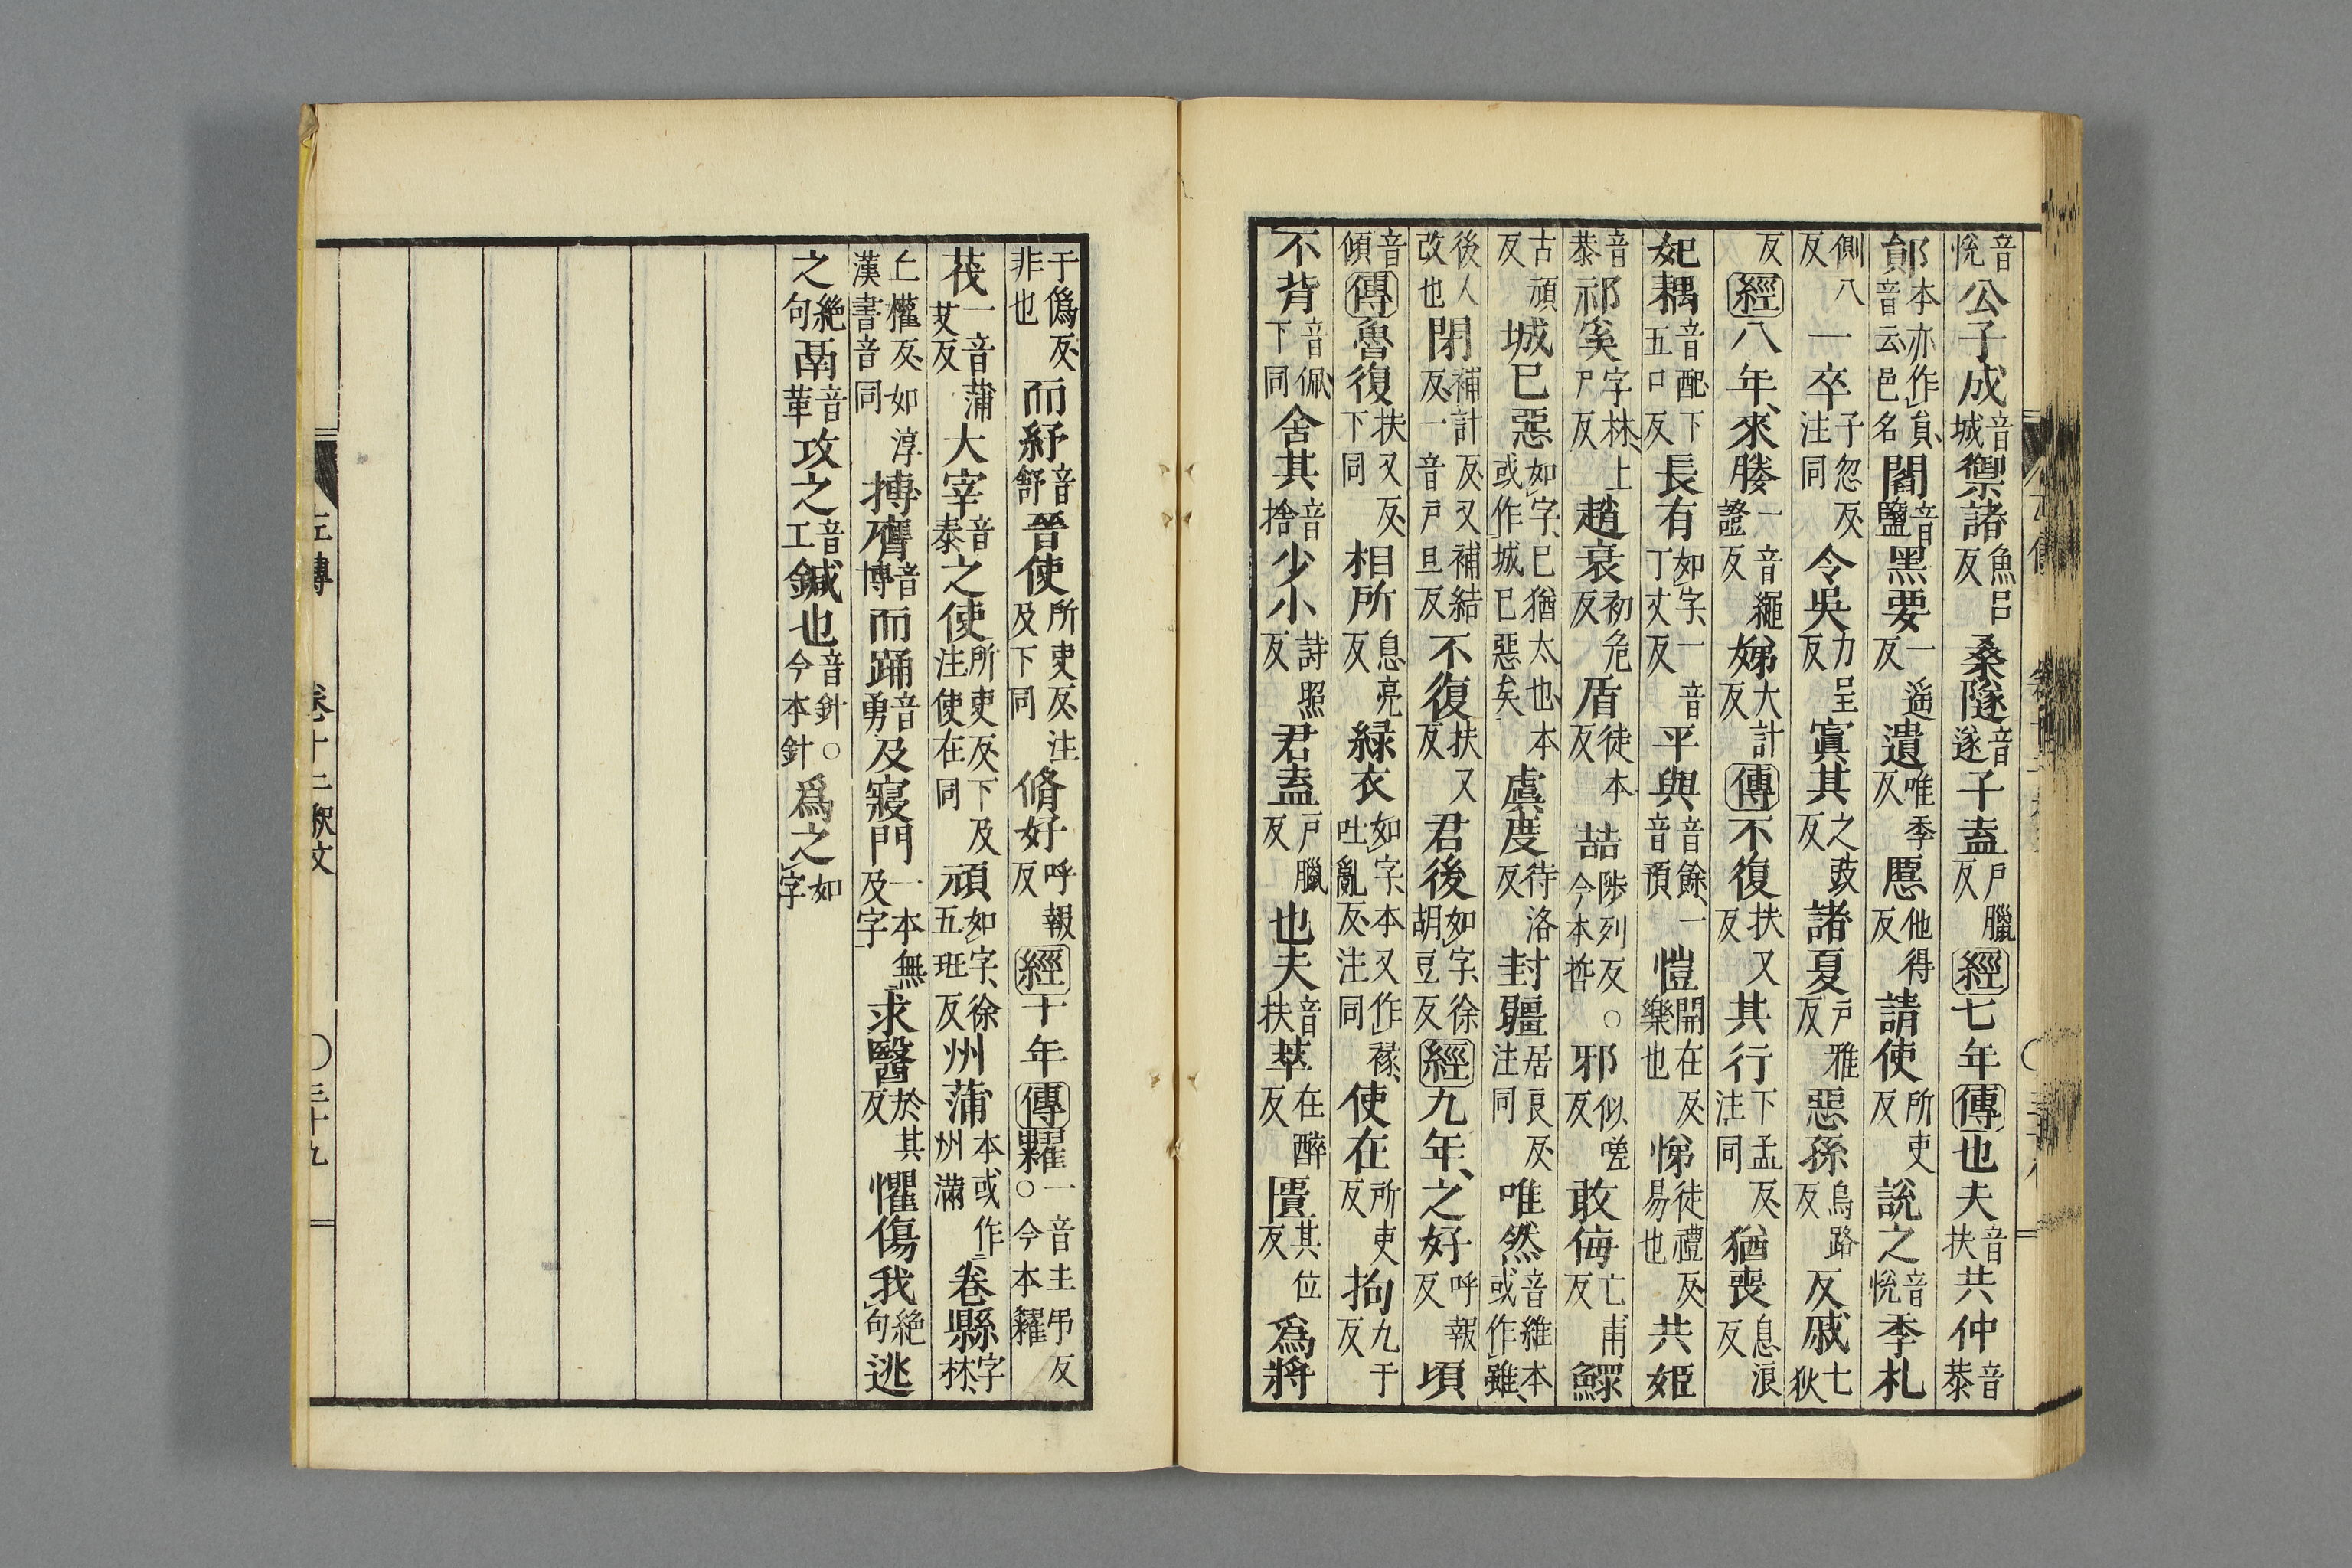 音悅公子成音城禦諸魚呂反桑隧音遂子盍戶臘反經七年傳也夫音扶共仲音恭
鄖本亦作負、音云邑名閻音鹽黑要一遥反遺唯季反慝他得反請使所吏反說之音悅季札
側八反一卒子忽反、注同令吳力呈反寘其之豉反諸夏戶雅反惡孫烏路反反戚七狄
反經八年、來媵一音繩證反娣大計反傳不復扶又反其行下孟反、注同猶喪息浪反
妃耦音配下五口反長有如字、一丁丈反一音平與音餘、一音預愷開在反、樂也悌徒禮反、易也共姬
音恭祁奚字林、上尸反趙衰初危反盾徒本反喆陟列反○今本哲邪似嗟反敢侮亡甫反鰥
古頑反城已惡如字、已猶太也、本或作城已惡矣虞度待洛反封疆居良反、注同唯然音維本或作雖、
後人改也閉補計反、又補結反、一音戶旦反不復扶又反君後如字、徐胡豆反經九年、之好呼報反頃
音傾傳魯復扶又反、下同相所息亮反緑衣如字、本又作褖、吐亂反、注同使在所吏反拘九于反
不背音佩下同舍其音捨少小詩照反君盍戶臘反也夫音扶萃在醉反匱其位反爲將
于僞反、非也而紓音舒晉使所吏反、注及下同脩好呼報反經十年傳糶一音主弔反○今本糴
茷一音蒲艾反大宰音泰之使所吏反、下及注使在同頑如字、徐五班反州蒲本或作州滿卷縣字林、
丄權反、如淳漢書音同搏膺音博而踊音勇及寢門一本無及字求醫於其反懼傷我絶句逃
之絶句鬲音革攻之音工鍼也音針○今本針爲之如字
左傳　卷十二釈文　〇三十九